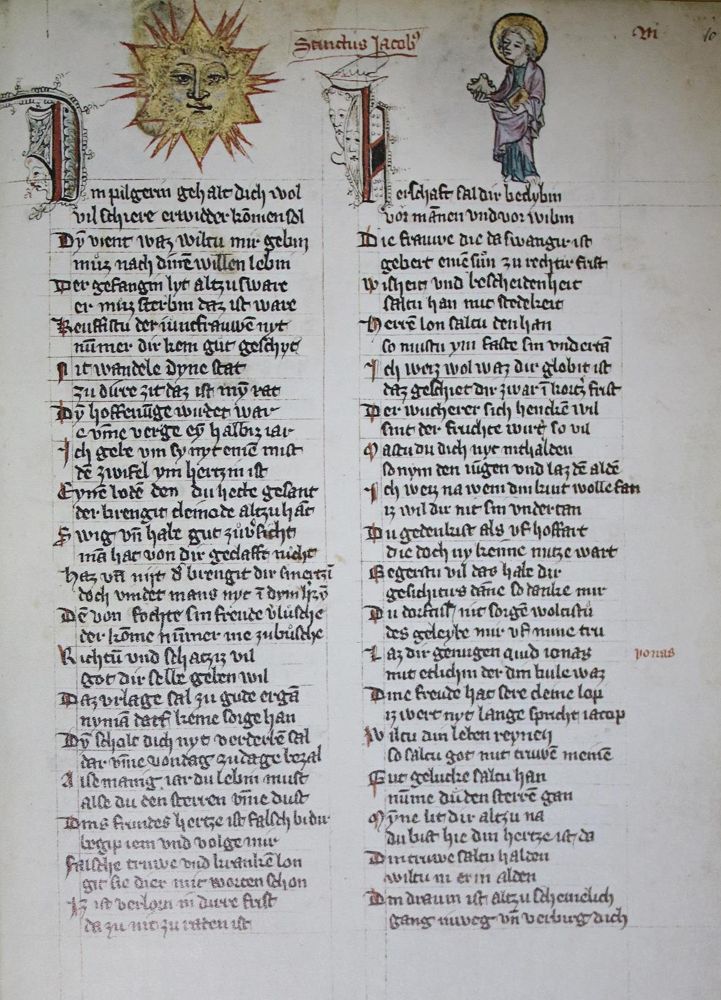 Sanctus Jacob⁹
VI
10
In pilgerin gehalt dich wol
vil schiere er widder kōmen sol
Dȳ vient waz wiltu mir gebin
můz nach dinen willen lebin
Der gefangin lyt altzu sware
er můz sterbin daz ist ware
Keuffistu der iuncfrauwen nyt
nūmer dir kein gut geschyt
Nit wandele dyne stat
zu dirre zit daz ist mȳ rat
Dȳ hoffenūge wirdet war
e vm̄e verge eȳ halbiz iar
Ich gebe vm sy nyt einen mist
dē zwifel ym hertzin ist
Eynē boden den du hette gesant
der brengit cleinode altzu hāt
Swig vn̄ habe gut zův̓sicht
mā hat von dir geclafft nicht
Haz vn̄ nijt d̓ brengit dir smertzī
doch vindet mans nyt ī dym h̓tzē
Dē von fochte sin freude v̓lusche
der kōme nūmer me zu busche
Richtū vnd schatziz vil
got dir selbe geben wil
Daz vrlage sal zu gude ergā
nyman darf keine sorge han
Dȳ scholt dich nyt verderbē sal
dar vm̄e von dag zu dage bezal
Alse manig iar du lebin must
alse du den sterren vm̄e dust
Dins frundes hertze ist falsch bi dir
begip iem vnd volge mir
Falsche truwe vnd kranken lon
git sie dier mit worten schon
Iz ist verlorn in dirre frist
da zu nit zu raten ist
erschaft sal dir beclybin
vor mānen vnd vor wibin
Die frauwe die da swangir ist
gebert einē sůn zu rechtir frist
Wisheit vnd bescheidenheit
saltu han mit stedekeit
Herrē lon saltu den han
so mustu ym faste sin vndertā
Ich weiz wol waz dir globit ist
daz geschiet dir zwar ī kortz̓ frist
Der wucherer sich henckē wil
sint der fruchte wirt so vil
Mastu du dich nyt inthalden
so nym den iūgen vnd laz dē aldē
Ich weiz na wem din krut wolle fan
iz wil dir nit sin vndertan
Du gedenkist als vf hoffart
die doch ny keine nutze wart
Begerstu vil das habe dir
gesichtus dāne so danke mir
Du dorfist nit sorgē woltistu
des geleybe mir vf mine tru
Laz dir genugen quid ionas
mit etlichin der din bule waz
ionas
Dine freude hat sere cleine lop
iz wert nyt lange spricht iacop
Wiltu din leben reynen
so saltu got mit truwē meinē
Gut gelucke saltu han
nūme du den sterrē gan
Mȳne lit dir altzu na
du bist hie din hertze ist da
Din truwe saltu halden
wiltu in ern alden
Din draum ist altzu scheinelich
gang inweg vn̄ verbirg dich